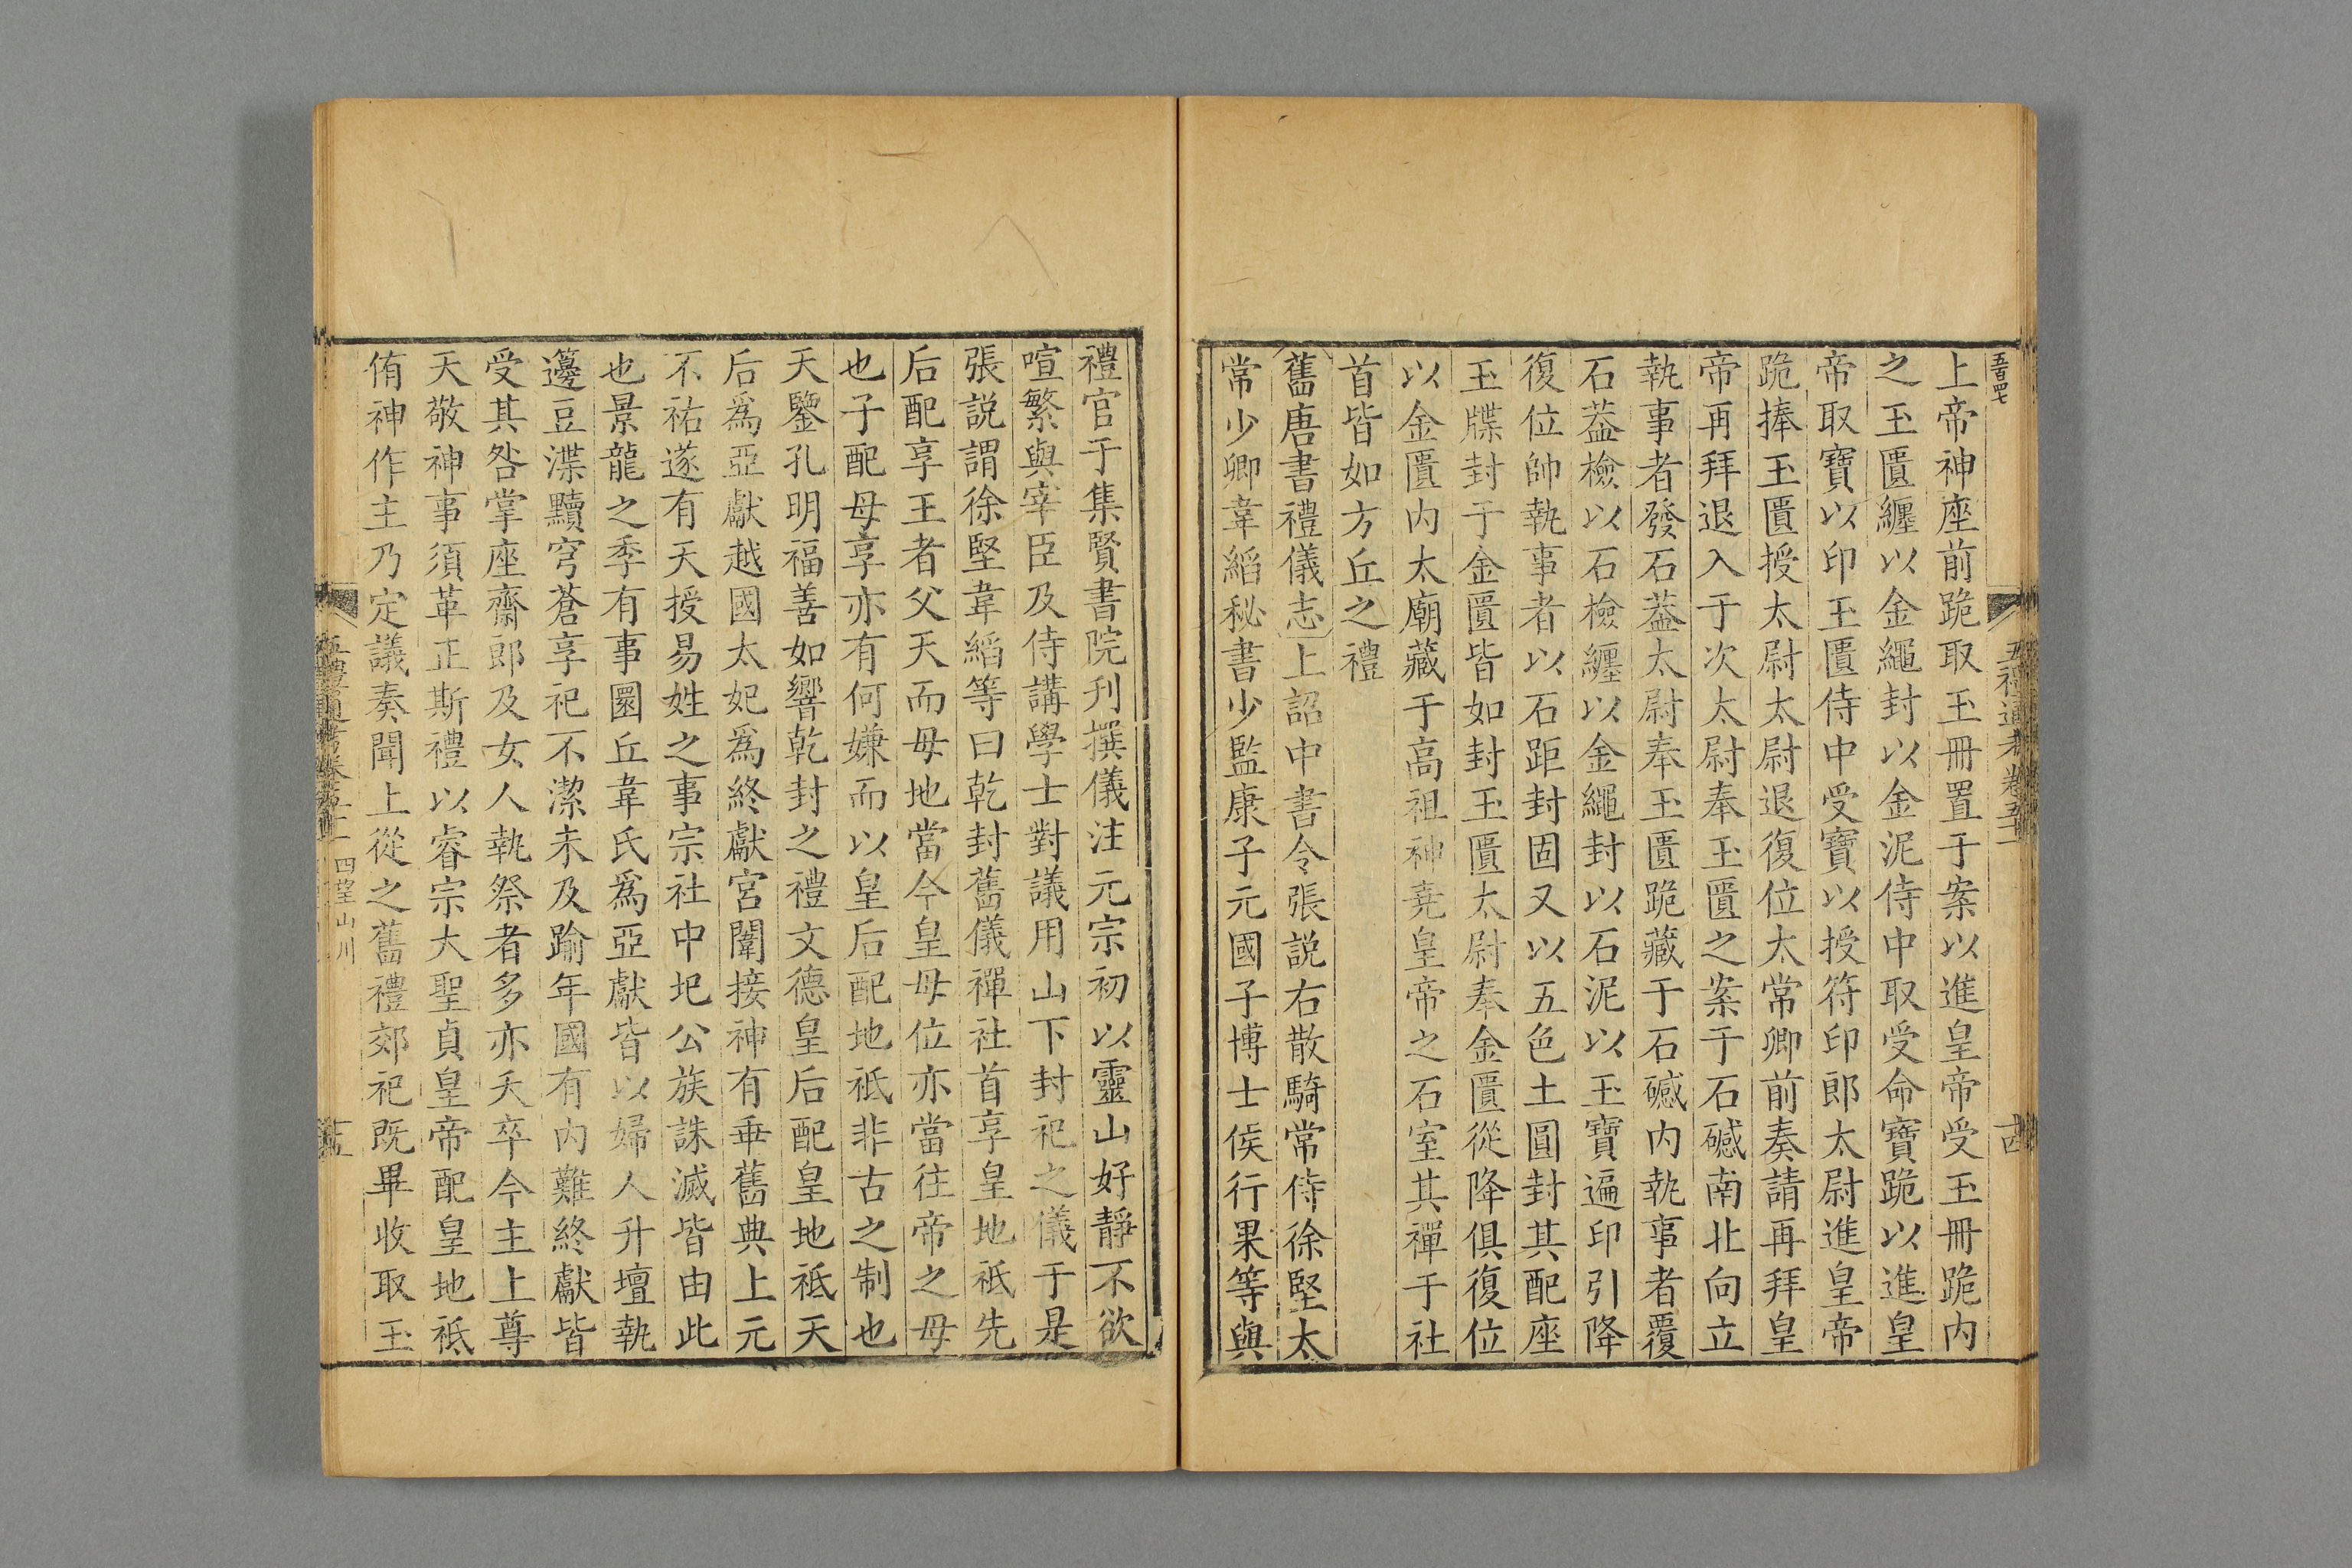 上帝神座前跪取玉冊置于案以進皇帝受玉冊跪内
之玉匱纏以金繩封以金泥侍中取受命寶跪以進皇
帝取寶以印玉匱侍中受寶以授符印郎太尉進皇帝
跪捧玉匱授太尉太尉退復位太常卿前奏請再拜皇
帝再拜退入于次太尉奉玉匱之案于石𥔎南北向立
執事者發石葢太尉奉玉匱跪藏于石𥔎内執事者覆
石葢檢以石檢纏以金繩封以石泥以玉寶遍印引降
復位帥執事者以石距封固又以五色土圓封其配座
玉牒封于金匱皆如封玉匱太尉奉金匱從降俱復位
以金匱内太廟藏于高祖神堯皇帝之石室其禪于社
首皆如方丘之禮
舊唐書禮儀志上詔中書令張説右散騎常侍徐堅太
常少卿韋縚秘書少監康子元國子博士侯行果等與
禮官于集賢書院刋撰儀注元宗初以靈山好靜不欲
喧繁與宰臣及侍講學士對議用山下封祀之儀于是
張説謂徐堅韋縚等曰乾封舊儀禪社首享皇地祗先
后配享王者父天而母地當今皇母位亦當往帝之母
也子配母享亦有何嫌而以皇后配地祗非古之制也
天鑒孔明福善如響乾封之禮文德皇后配皇地祗天
后爲亞獻越國太妃爲終獻宮闈接神有乖舊典上元
不祐遂有天授易姓之事宗社中圯公族誅滅皆由此
也景龍之季有事圜丘韋氏爲亞獻皆以婦人升壇執
籩豆渫黷穹蒼享祀不潔未及踰年國有内難終獻皆
受其咎掌座齋郎及女人執祭者多亦夭卒今主上尊
天敬神事須革正斯禮以睿宗大聖貞皇帝配皇地祗
侑神作主乃定議奏聞上從之舊禮郊祀既畢收取玉
四望山川